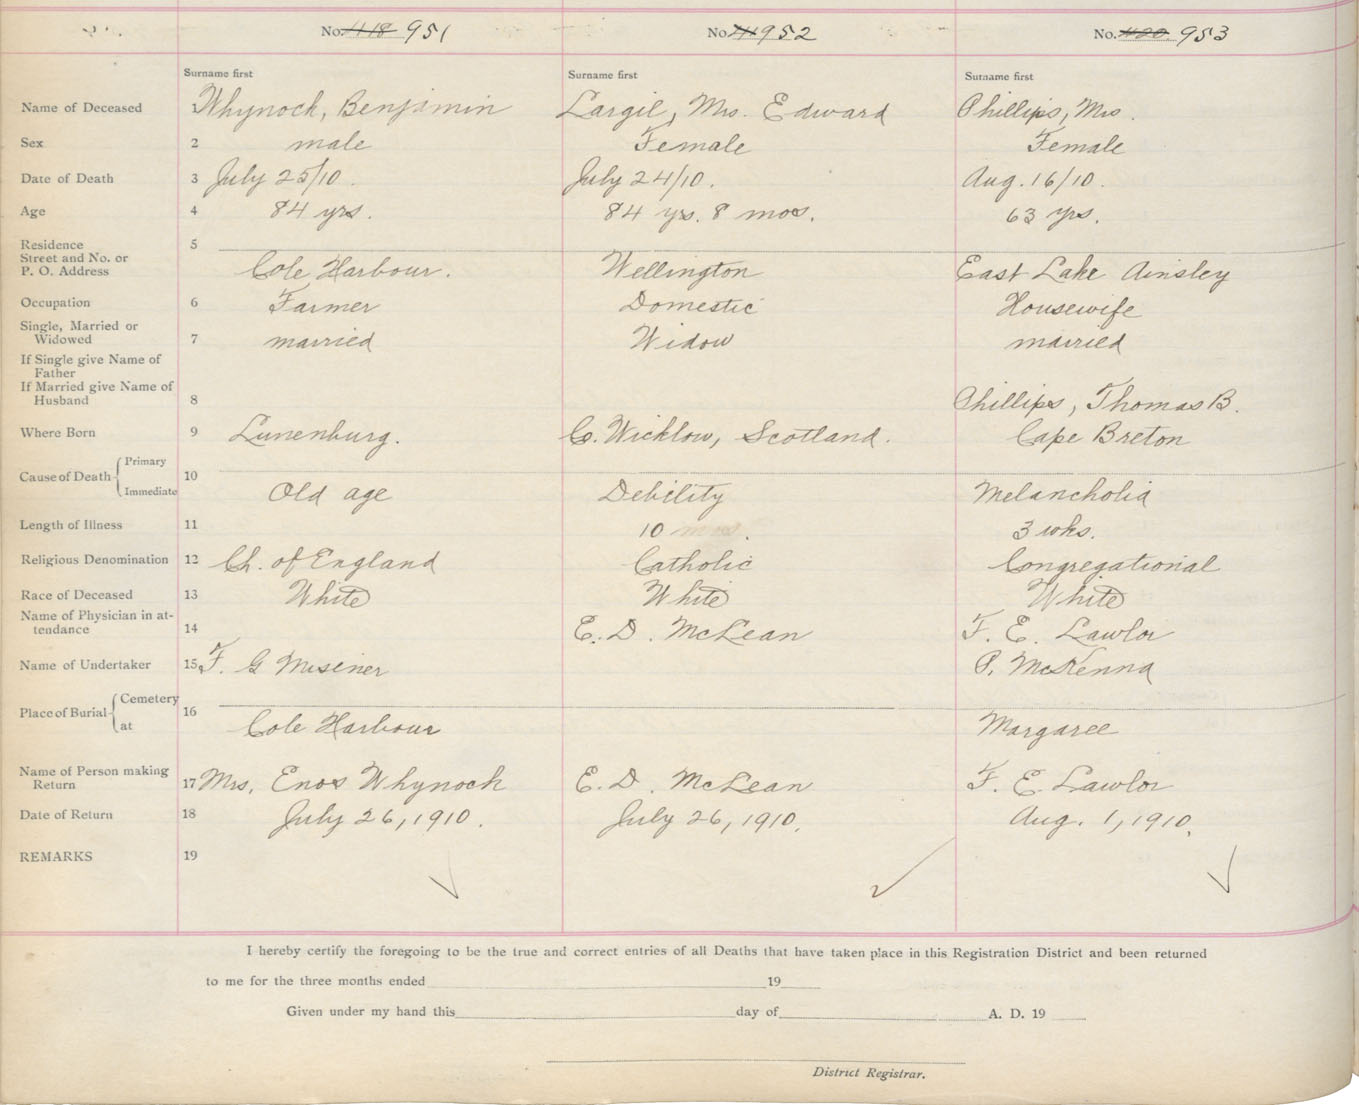 No. 418 951 No. 41 952 No. 420 953
Surname first Surname first Surname first
Name of Deceased 1 Whynock, Benjamin Largil, Mrs. Edward Phillips, Mrs.
Sex 2 male Female Female
Date of Death 3 July 25/10. July 24/10. Aug. 16/10.
Age 4 84 yrs. 84 yrs. 8 mos. 63 yrs.
Residence 5
Street and No. or
P. O. Address Cole Harbour. Wellington East Lake Ainsley
Occupation 6 Farmer Domestic Housewife
Single, Married or
Widowed 7 married Widow married
If Single give Name of
Father
If Married give Name of
Husband 8 Phillips, Thomas B.
Where Born 9 Lunenburg. C. Wicklow, Scotland. Cape Breton
Cause of Death Primary 10
Immediate Old age Debility Melancholia
Length of Illness 11 10 mos. 3 wks.
Religious Denomination 12 Ch. of England Catholic Congregational
Race of Deceased 13 White White White
Name of Physician in at-
tendance 14 E. D. McLean F. E. Lawlor
Name of Undertaker 15 F. G Misener P. McKenna
Place of Burial Cemetery 16
at Cole Harbour Margaree
Name of Person making
Return 17 Mrs. Enos Whynock E. D. McLean F. E. Lawlor
Date of Return 18 July 26, 1910. July 26, 1910. Aug. 1, 1910.
REMARKS 19
I hereby certify the foregoing to be the true and correct entries of all Deaths that have taken place in this Registration District and been returned
to me for the three months ended 19
Given under my hand this day of A. D. 19
District Registrar.